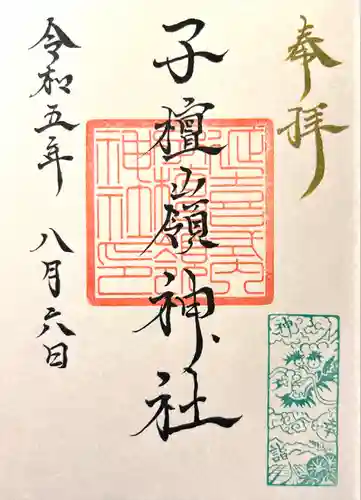 奉拝
子檀嶺神社
令和五年 八月六日